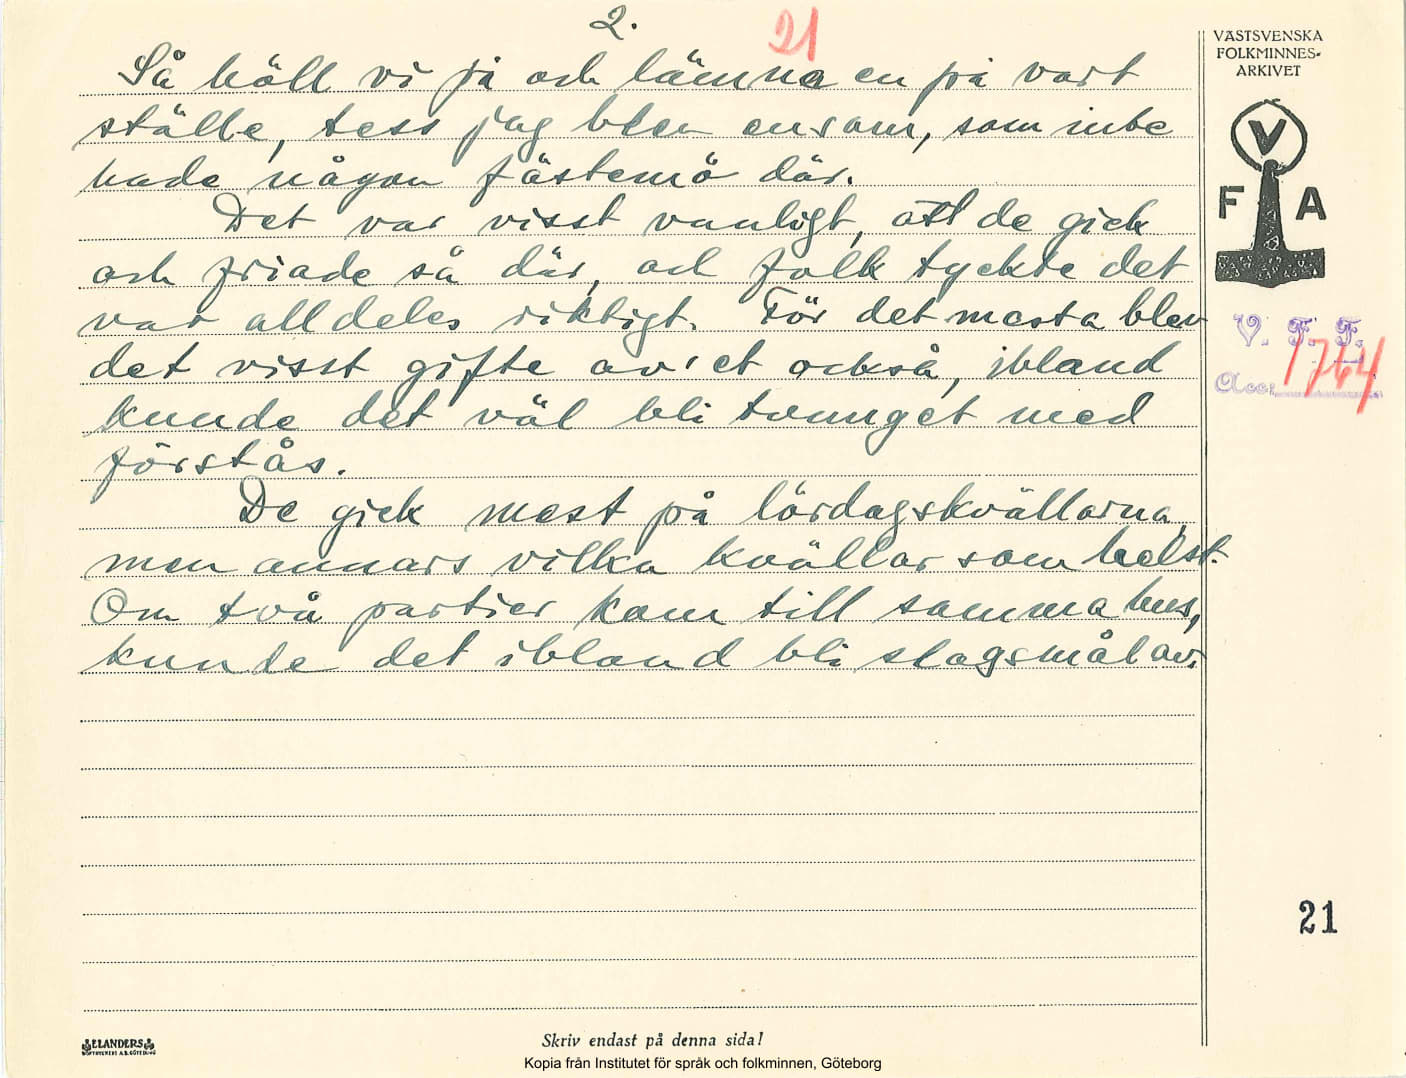 2.
21
Så höll vi på och lämna en på vart
ställe, tess jag blev ensam, som inte
hade någon fästemö där.
Det var visst vanligt, att de gick
och friade så där, och folk tyckte det
var alldeles riktigt. För det mesta blev
det visst gifte av'et också, ibland
kunde det väl bli tvunget med
förstås.
De gick mest på lördagskvällarna,
men annars vilka kvällar som helst.
Om två partier kom till samma hus,
kunde det ibland bli slagsmål av.
VÄSTSVENSKA
FOLKMINNES-
ARKIVET
V
F A
V. F. F.
Acc: 1764
21
ELANDERS
Skriv endast på denna sida!
Kopia från Institutet för språk och folkminnen, Göteborg